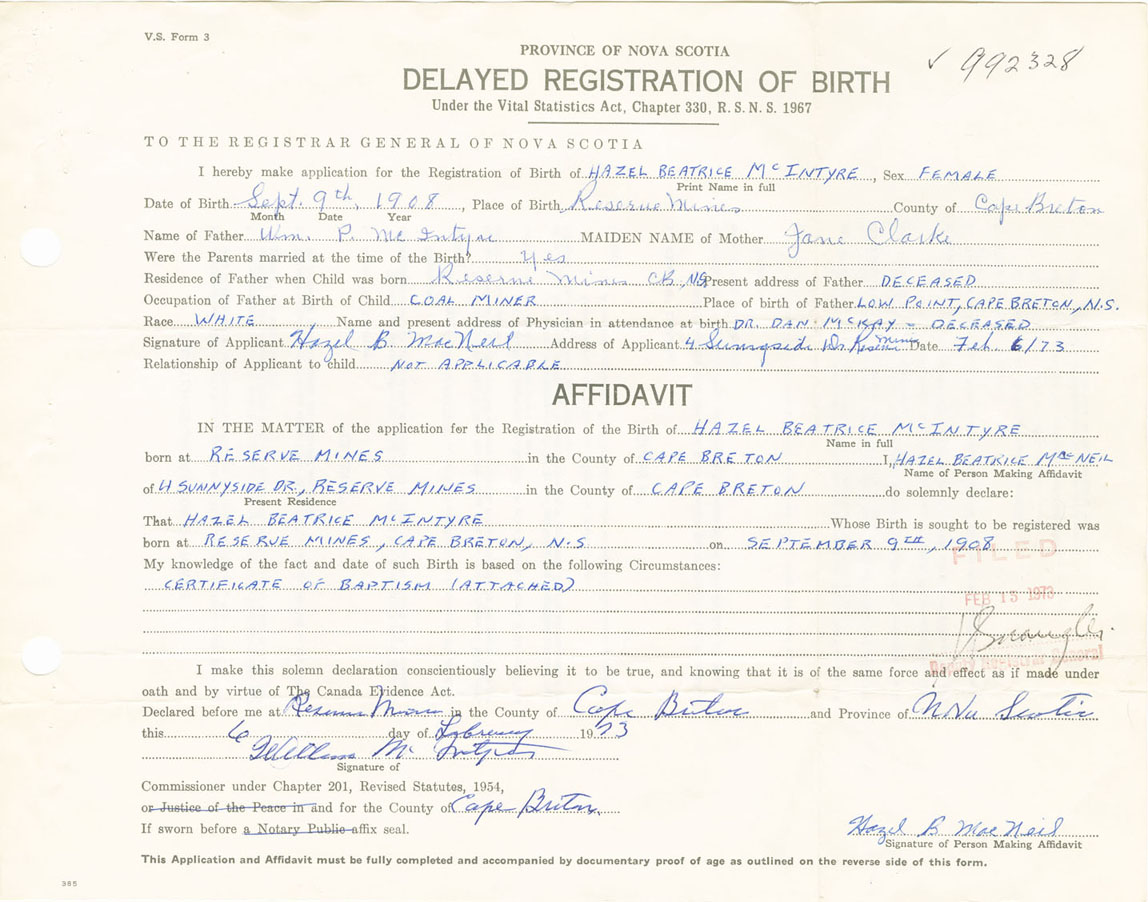 V.S. Form 3
PROVINCE OF NOVA SCOTIA
✓ 992328
DELAYED REGISTRATION OF BIRTH
Under the Vital Statistics Act, Chapter 330, R.S.N.S. 1967
TO THE REGISTRAR GENERAL OF NOVA SCOTIA
I hereby make application for the Registration of Birth of HAZEL BEATRICE McINTYRE, Sex FEMALE
Print Name in full
Date of Birth Sept. 9th, 1908, Place of Birth Reserve Mines County of Cape Breton
Month Date Year
Name of Father Wm. P. McIntyre MAIDEN NAME of Mother Jane Clarke
Were the Parents married at the time of the Birth? Yes
Residence of Father when Child was born Reserve Mines CB, NS Present address of Father DECEASED
Occupation of Father at Birth of Child COAL MINER Place of birth of Father LOW POINT, CAPE BRETON, N.S.
Race WHITE, Name and present address of Physician in attendance at birth DR. DAN McKAY - DECEASED
Signature of Applicant Hazel B. MacNeil Address of Applicant 4 Sunnyside Dr. Reserve Mines Date Feb 6/73
Relationship of Applicant to child NOT APPLICABLE
AFFIDAVIT
IN THE MATTER of the application for the Registration of the Birth of HAZEL BEATRICE McINTYRE
Name in full
born at RESERVE MINES in the County of CAPE BRETON I, HAZEL BEATRICE MacNEIL
Name of Person Making Affidavit
of 4 SUNNYSIDE DR., RESERVE MINES in the County of CAPE BRETON do solemnly declare:
Present Residence
That HAZEL BEATRICE McINTYRE Whose Birth is sought to be registered was
born at RESERVE MINES, CAPE BRETON, N.S on SEPTEMBER 9TH, 1908
My knowledge of the fact and date of such Birth is based on the following Circumstances:
CERTIFICATE OF BAPTISM (ATTACHED)
FILED
FEB 13 1973
Deputy Registrar General
I make this solemn declaration conscientiously believing it to be true, and knowing that it is of the same force and effect as if made under
oath and by virtue of The Canada Evidence Act.
Declared before me at Reserve Mines in the County of Cape Breton and Province of Nova Scotia
this 6 day of February 1973
William McIntyre
Signature of
Commissioner under Chapter 201, Revised Statutes, 1954,
or Justice of the Peace in and for the County of Cape Breton
If sworn before a Notary Public affix seal.
Hazel B MacNeil
Signature of Person Making Affidavit
This Application and Affidavit must be fully completed and accompanied by documentary proof of age as outlined on the reverse side of this form.
385